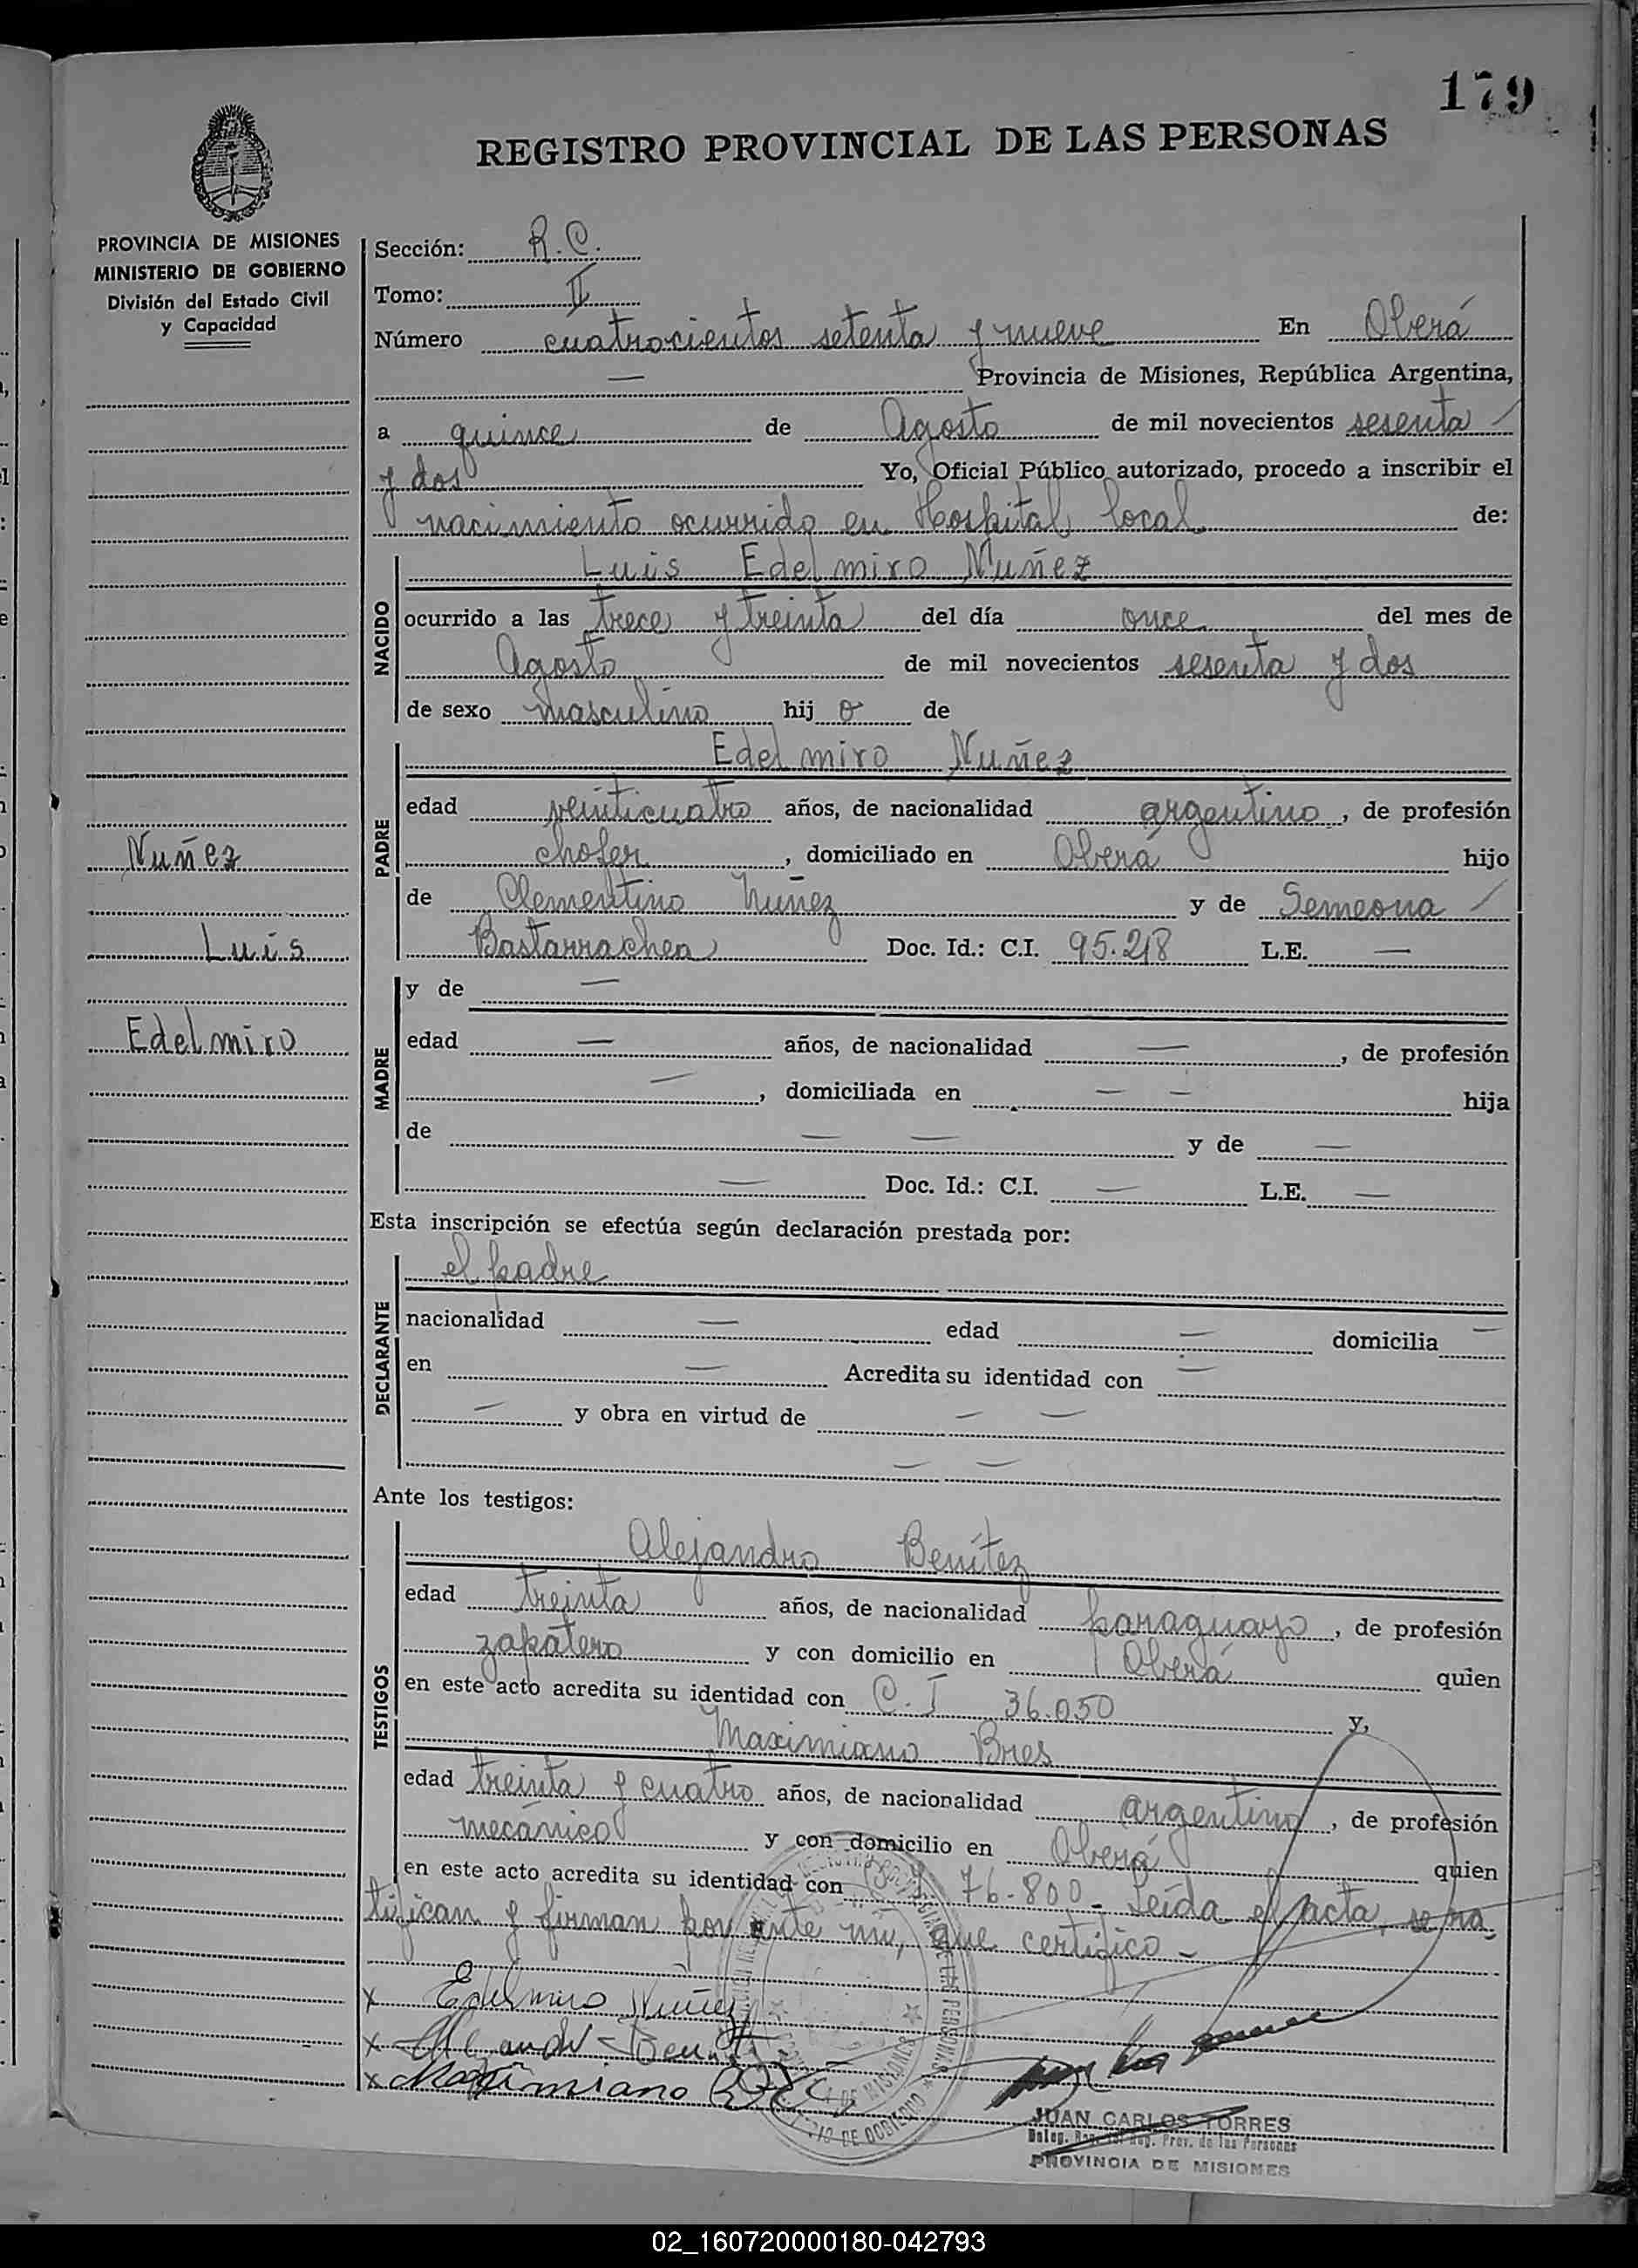 179
REGISTRO PROVINCIAL DE LAS PERSONAS
PROVINCIA DE MISIONES
MINISTERIO DE GOBIERNO
División del Estado Civil
y Capacidad
Nuñez
Luis
Edelmiro
Sección: R.C.
Tomo: II
Número cuatrocientos setenta y nueve En Oberá
— Provincia de Misiones, República Argentina,
a quince de Agosto de mil novecientos sesenta
y dos Yo, Oficial Público autorizado, procedo a inscribir el
nacimiento ocurrido en Hospital local de:
NACIDO
Luis Edelmiro Nuñez
ocurrido a las trece y treinta del día once del mes de
Agosto de mil novecientos sesenta y dos
de sexo masculino hij o de
PADRE
Edelmiro Nuñez
edad veinticuatro años, de nacionalidad argentino, de profesión
chofer, domiciliado en Oberá hijo
de Clementino Nuñez y de Semeona
Bastarrachea Doc. Id.: C.I. 95.218 L.E. —
MADRE
y de —
edad — años, de nacionalidad —, de profesión
—, domiciliada en — — hija
de — — y de —
— Doc. Id.: C.I. — L.E. —
Esta inscripción se efectúa según declaración prestada por:
DECLARANTE
el padre
nacionalidad — edad — domicilia —
en — Acredita su identidad con —
— y obra en virtud de — —
— —
Ante los testigos:
TESTIGOS
Alejandro Benítez
edad treinta años, de nacionalidad paraguayo, de profesión
zapatero y con domicilio en Oberá quien
en este acto acredita su identidad con C.I 36.050 y,
Maximiano Bres
edad treinta y cuatro años, de nacionalidad argentino, de profesión
mecánico y con domicilio en Oberá quien
en este acto acredita su identidad con 76.800 - Leída el acta, se ra-
tifican y firman por ante mi, que certifico -
x Edelmiro Nuñez
x
x Maximiano
JUAN CARLOS TORRES
Deleg. Reg. Prov. de las Personas
PROVINCIA DE MISIONES
02_160720000180-042793